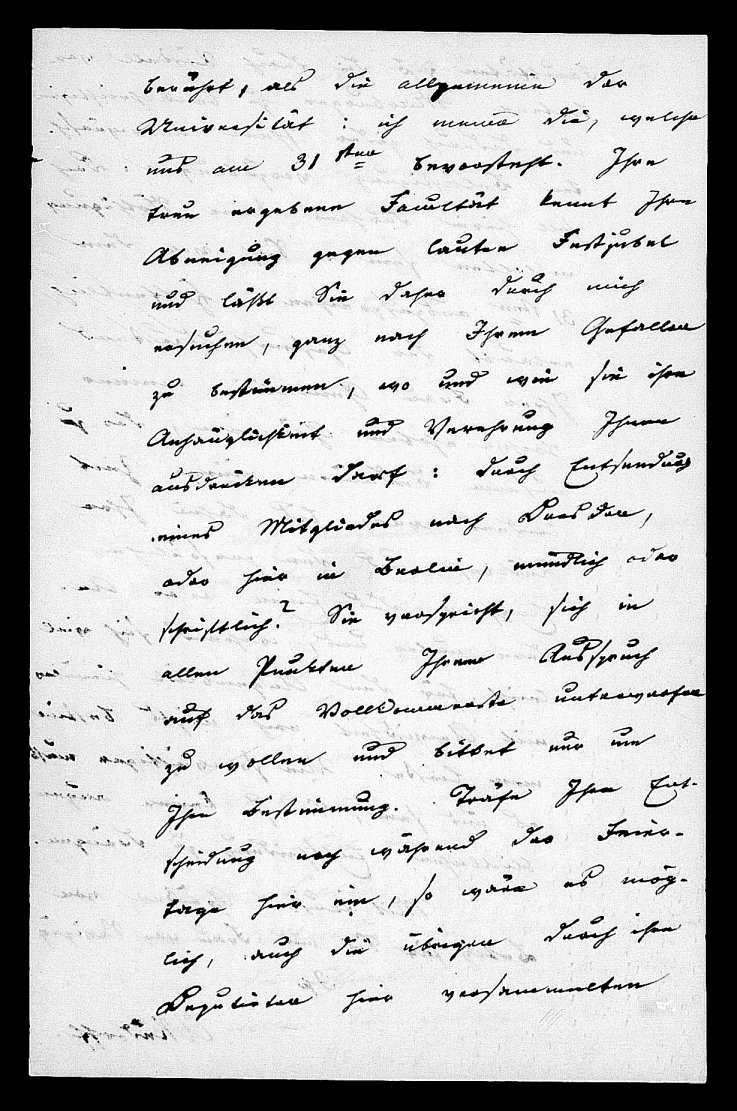 berührt, als die allgemeine der
Universität: ich meine die, welche
uns am 31sten bevorsteht. Ihre
treu ergebene Facultät kennt Ihre
Abneigung gegen lauten Festjubel
und läßt Sie daher durch mich
ersuchen, ganz nach Ihrem Gefallen
zu bestimmen, wo und wie sie ihre
Anhänglichkeit und Verehrung Ihnen
ausdrücken darf: durch Entsendung
eines Mitgliedes nach Dresden,
oder hier in Berlin, mündlich oder
schriftlich? Sie verspricht, sich in
allen Punkten Ihrem Ausspruch
auf das Vollkommenste unterwerfen
zu wollen und bittet nur um
Ihre Bestimmung. Träfe Ihre Ent-
scheidung noch während der Feier-
tage hier ein, so wäre es mög-
lich, auch die übrigen durch ihre
Deputirten hier versammelten